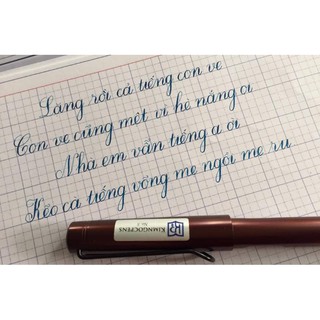 Lặng rồi cả tiếng con ve
Con ve cũng mệt vì hè nắng oi
Nhà em vẫn tiếng ạ ời
Kẽo cà tiếng võng mẹ ngồi mẹ ru
KIMNGOCPENS